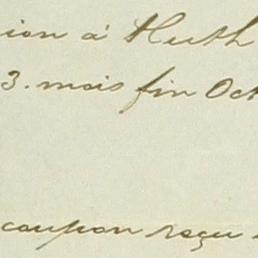 ion à Huth
3. mois fin Oct
coupon reçu